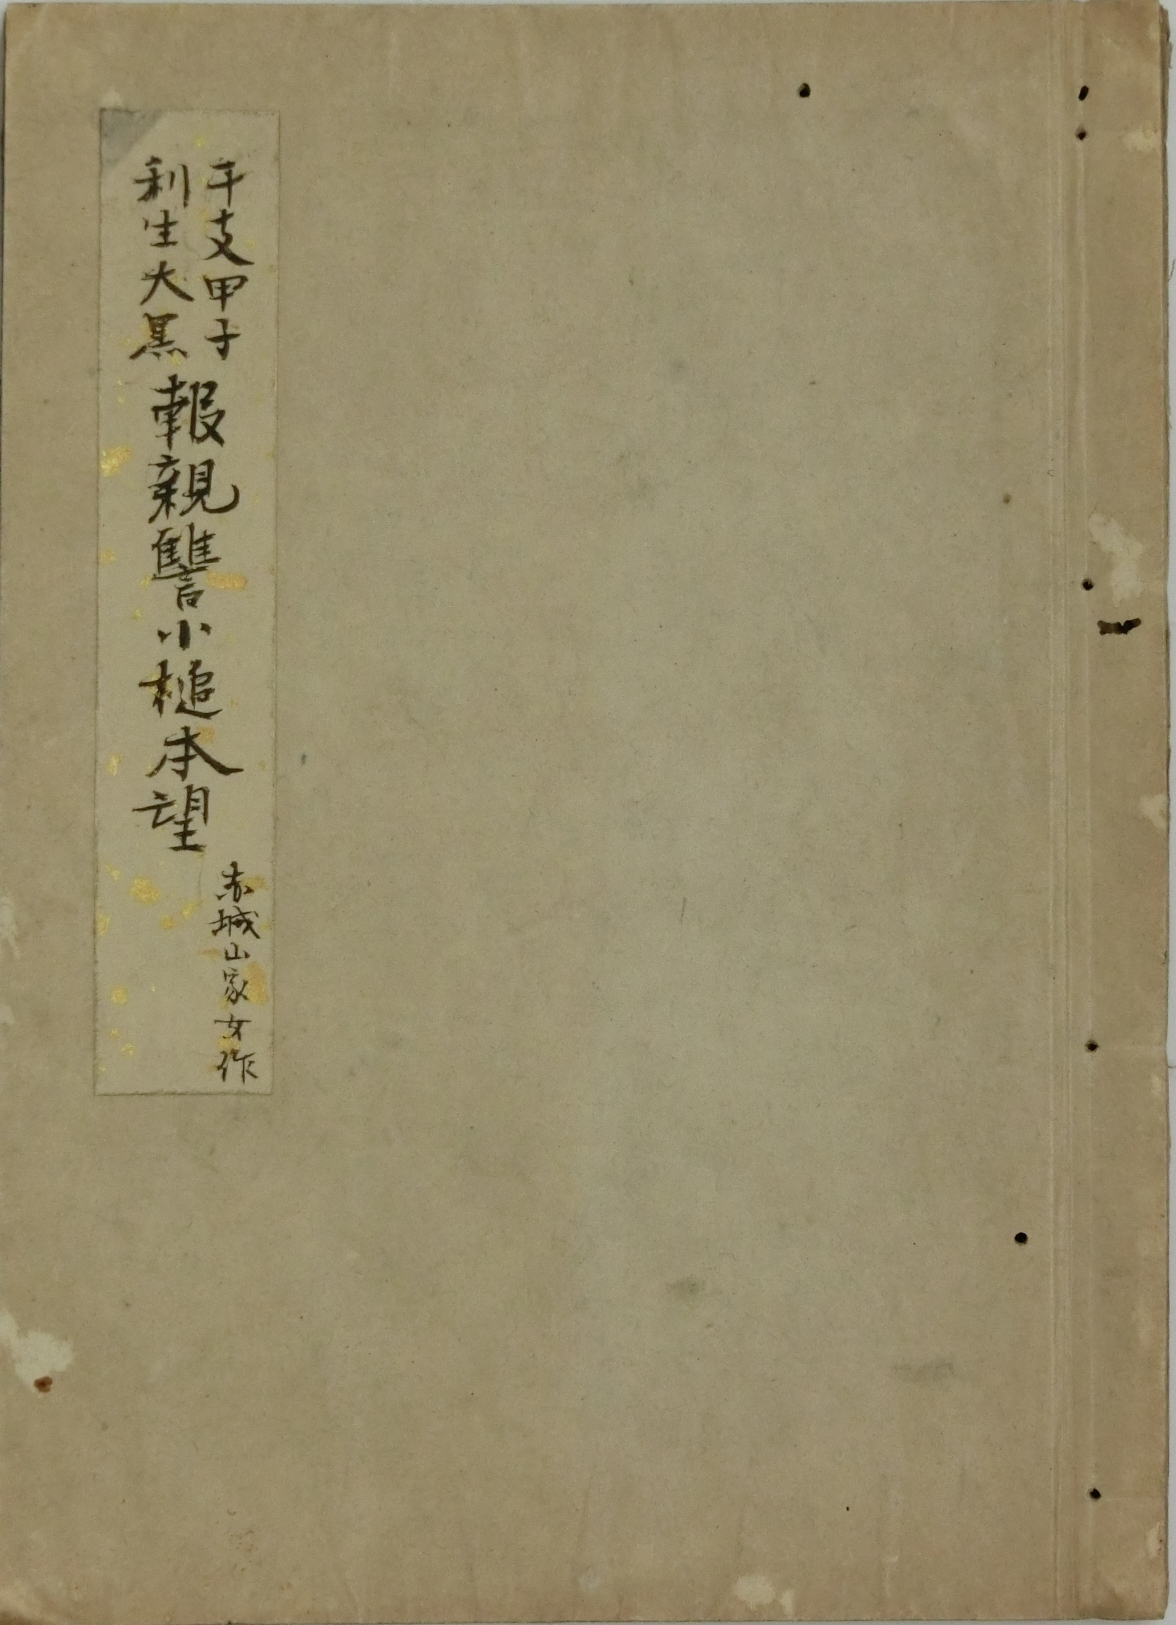 干支甲子
利生大黒
報親讐小槌本望
赤城山家女作